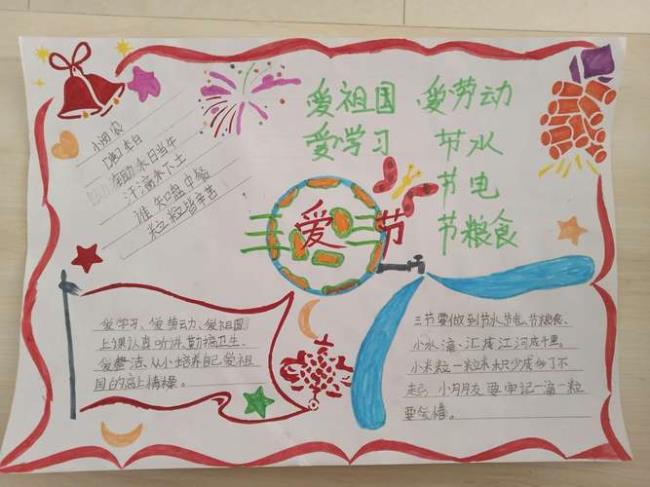 爱祖国 爱劳动
爱学习 节水
节电
节粮食
三爱三节
小悯农
[唐]李白
锄禾日当午
汗滴禾下土
谁知盘中餐
粒粒皆辛苦
爱学习、爱劳动、爱祖国
上课认真听讲、勤搞卫生、
爱整洁、从小培养自己爱祖
国的高上情操。
三节要做到节水节电、节粮食、
小水滴汇成江河成千里。
小米粒一粒粒积少成多了不
起，小朋友要牢记一滴一粒
要爱惜。